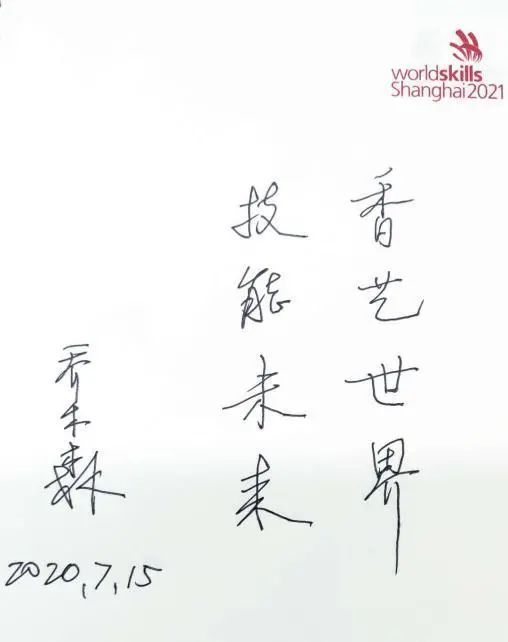 worldskills
Shanghai2021
香艺世界
技能未来
乔木森
2020,7,15